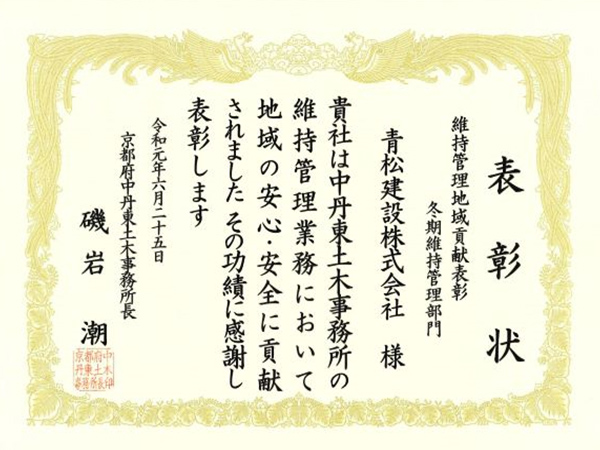 表彰状
維持管理地域貢献表彰
冬期維持管理部門
青松建設株式会社 様
貴社は中丹東土木事務所の
維持管理業務において
地域の安心・安全に貢献
されました その功績に感謝し
表彰します
令和元年六月二十五日
京都府中丹東土木事務所長
磯岩 潮